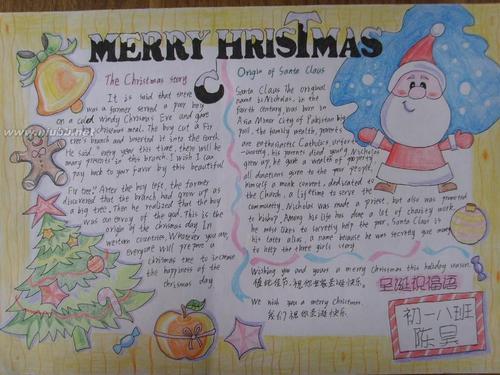 MERRY CHRISTMAS
The Christmas story
It is said that there
was a farmer served a poor boy
on a cold windy Chrismas Eve and gave
Christmas meal. The boy cut a Fir
tree's branch and inserted it into the earth.
He said "every year this time, there will be
many presents in this branch. I wish I can
pay back to your favor by this beautiful
Fir tree." After the boy left, the former
discovered that the branch had grew up as
a big tree. Then he realized that the boy
was an envoy of the god. This is the
origin of the christmas day. In
western countries, Whatever you are,
everyone will prepare a
christmas time to increase
the happiness of the
christmas day
Origin of Santa Claus
Santa Claus the original
name is Nicholas, in the
fourth century was born in
Asia Minor City of Pakistan big
pull, the family wealth, parents
are enthusiastic Catholics
his parents died early. Nicholas
grew up, he gave a wealth of property
all donations given to the poor people,
himself a monk convent, dedicated to
the Church, a lifetime to serve the
community. Nicholas was made a priest, but also was promoted
to bishop. Among his life has done a lot of charity work
he most likes to secretly help the poor. Santa Claus is
his later alias, a name because he was secretly gave money
to help the three girls story
Wishing you and yours a merry Christmas this holiday season.
值此佳节,祝你全家圣诞快乐.
We wish you a merry Christmas.
我们祝你圣诞快乐
圣诞祝福语
初一八班
陈昊